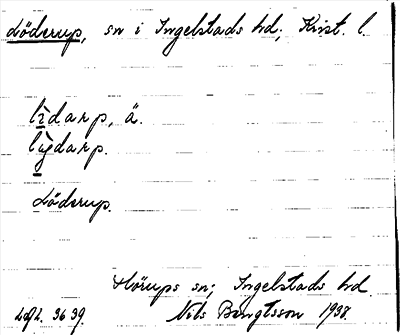 Löderup, sn i Ingelstads hd, Krist. l.
lìdarp, ä.
lỳdarp.
Löderup.
Hörups sn; Ingelstads hd.
3639. Nils Bengtsson 1938.